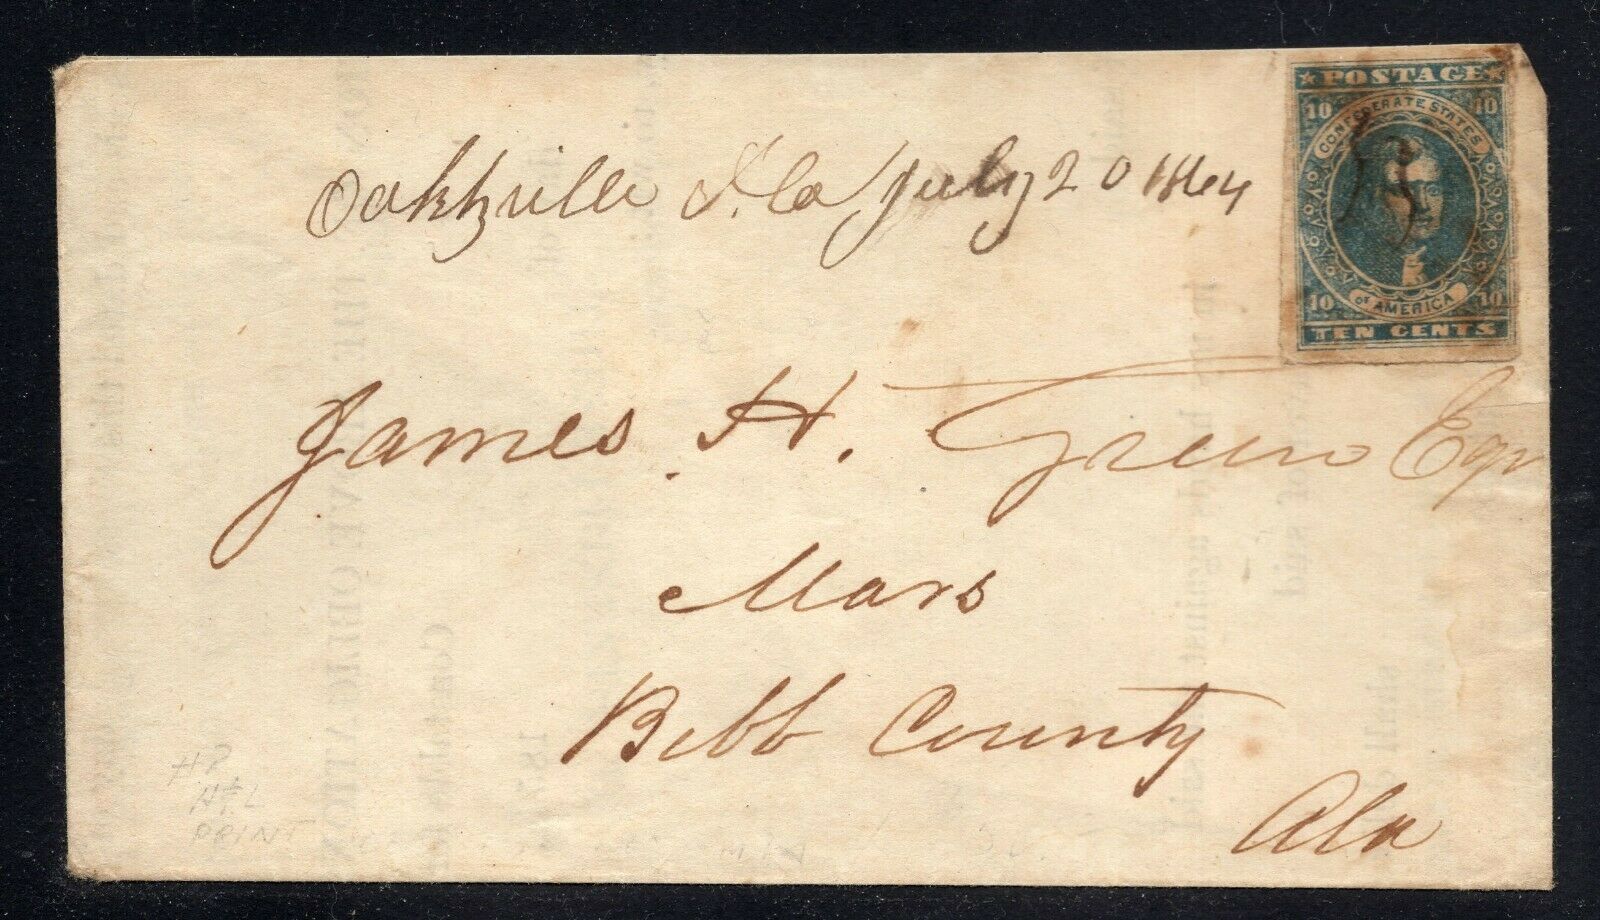 Oakville Fla July 20 1864
★ POSTAGE ★
10 10
CONFEDERATE STATES
of AMERICA
10 10
TEN CENTS
James H. Green Eqr
Mars
Bibb County
Ala
HP
PRINT